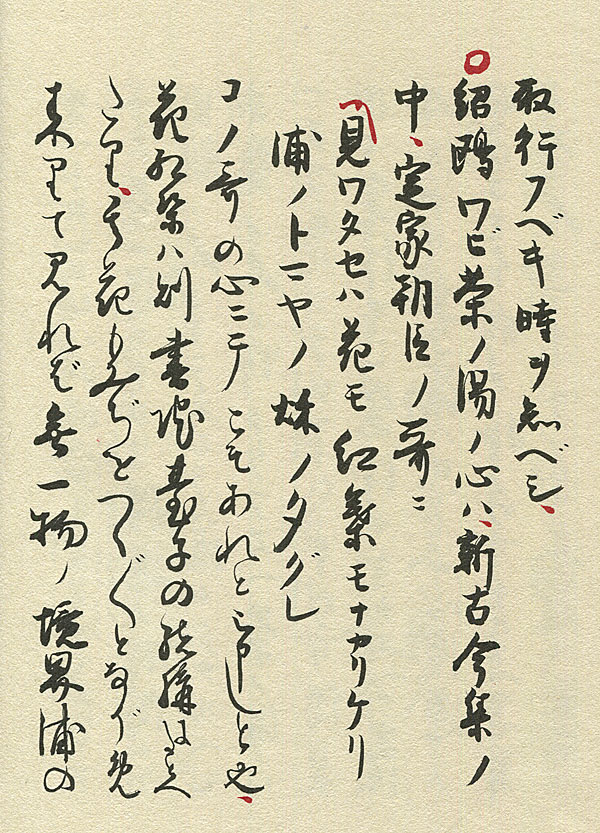 取行フベキ時ヲ知ベシ、
○紹鴎ワビ茶ノ湯ノ心ハ、新古今集ノ
中、定家朝臣ノ哥ニ
見ワタセハ花モ紅葉モナカリケリ
浦ノトマヤノ秋ノ夕グレ
コノ哥の心ニテこそあれと被申しと也、
花紅葉ハ則書院臺子の結構にたとへ
たり、其花もみぢをつく〲とながめ
来りて見れば無一物ノ境界浦の